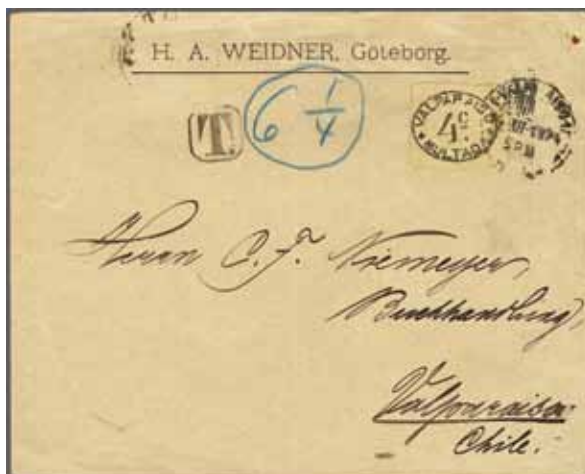 H. A. WEIDNER, Göteborg.
T.
6 1/4
VALPARAISO
4
MULTADA
5 PM
Herrn C. F. Niemeyer,
Buchhandlung,
Valparaiso
Chile.